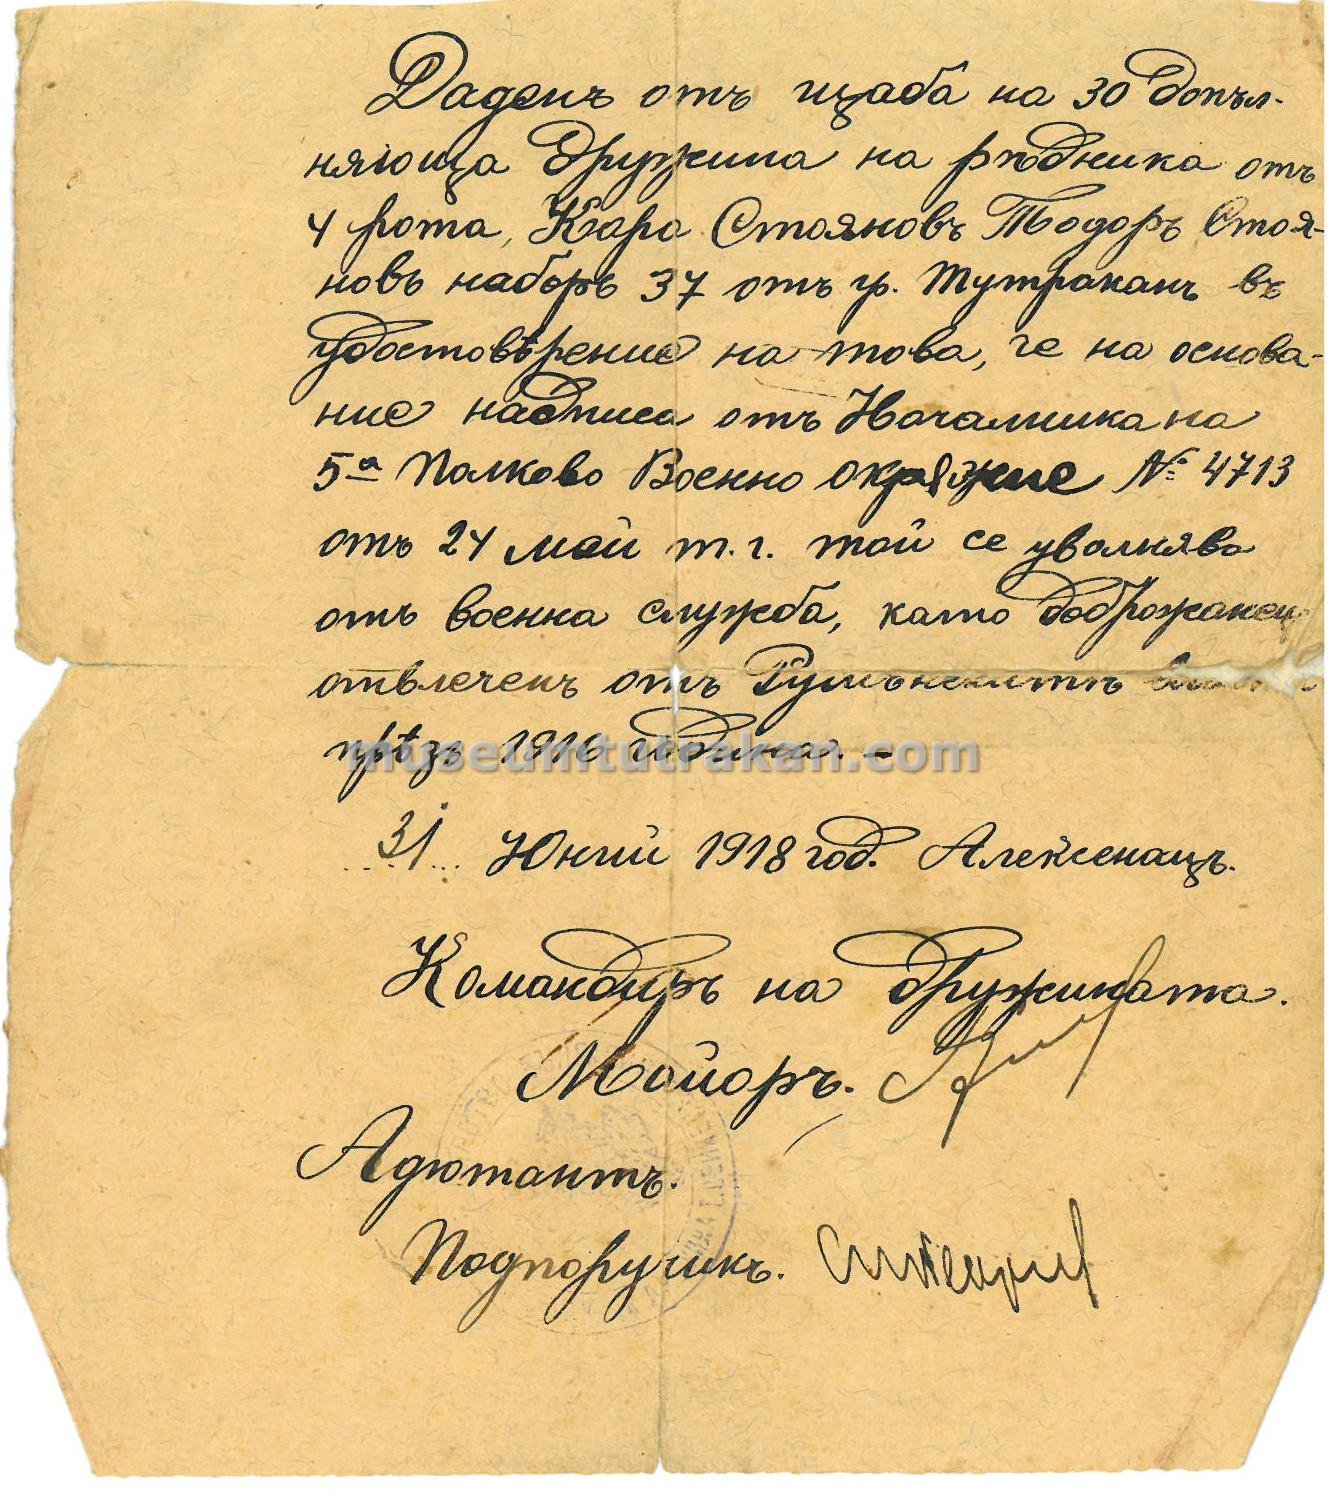 Даденъ отъ щаба на 30 допъл-
няюща дружина на рѣдника отъ
4 рота, Кара Стояновъ Тодоръ Стоя-
новъ наборъ 37 отъ гр. Тутраканъ въ
удостовѣрение на това, че на основа-
ние надписа отъ Началника на
5ᵃ Полково Военно окрѫжие № 4713
отъ 24 май т.г. той се уволнява
отъ военна служба, като доброжанец
отвлеченъ отъ Румънскитѣ
прѣзъ 1916 година. –
museumtutrakan.com
31 Юний 1918 год. Алексенацъ.
Командиръ на дружината.
Майоръ.
Адютантъ.
Подпоручикъ.